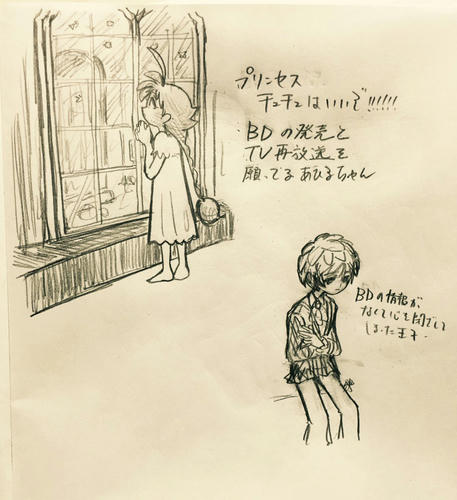 プリンセス
チュチュはいいぞ!!!!!!
BDの発売と
TV再放送を
願ってるあひるちゃん
BDの情報が
なくて心を閉ざして
しまった王子.